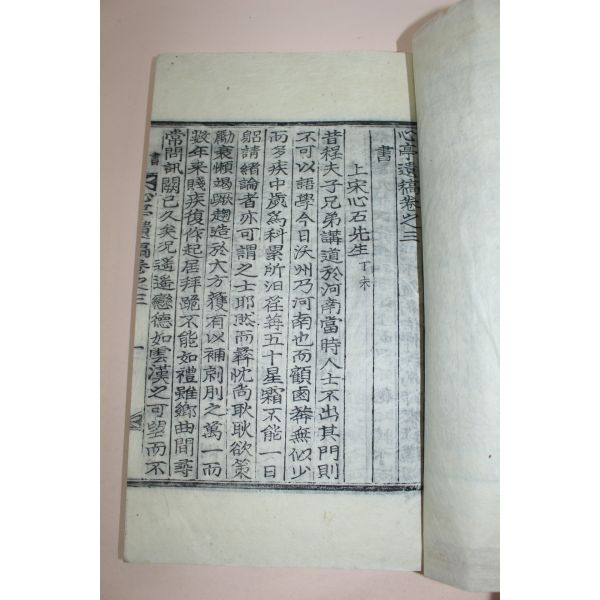 心亭遺稿卷之三
書
上宋心石先生 丁未
昔程夫子兄弟講道於河南當時人士不出其門則
不可以語學今日沃州乃河南也而顧鹵莽無似少
而多疾中歲爲科累所汩荏苒五十星霜不能一日
躬請緖論者亦可謂之士耶然而彛忱尙耿耿欲策
勵衰懶竭蹶趨造於大方獲有以補剠刖之萬一而
數年來賤疾復作起居拜跪不能如禮雖鄕曲間尋
常問訊闕已久矣况遙遙戀德如雲漢之可望而不
書 心亭遺稿卷之三 一